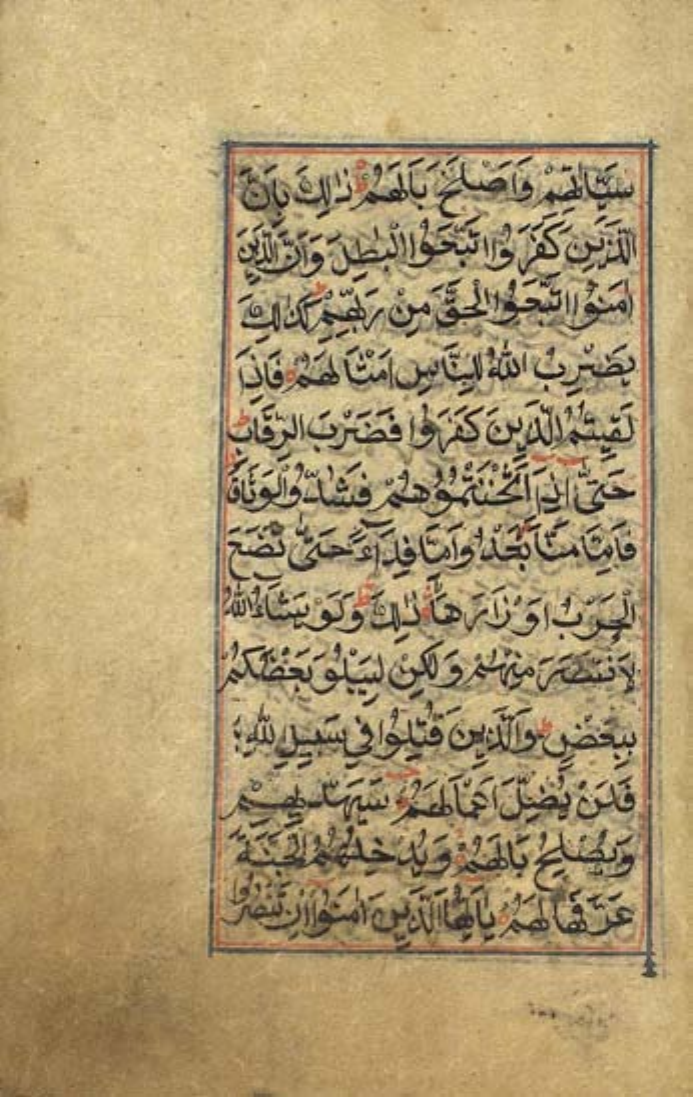 سَيِّاٰتِهِمْ وَاَصْلَحَ بَالَهُمْ ط ذٰلِكَ بِاَنَّ
الَّذِيْنَ كَفَرُوا اتَّبَعُوا الْبٰطِلَ وَاَنَّ الَّذِيْنَ
اٰمَنُوا اتَّبَعُوا الْحَقَّ مِنْ رَبِّهِمْ ط كَذٰلِكَ
يَضْرِبُ اللّٰهُ لِلنَّاسِ اَمْثَالَهُمْ فَاِذَا
لَقِيْتُمُ الَّذِيْنَ كَفَرُوْا فَضَرْبَ الرِّقَابِ ط
حَتّٰى اِذَا اَثْخَنْتُمُوْهُمْ فَشُدُّوا الْوَثَاقَ
فَاِمَّا مَنًّا بَعْدُ وَاِمَّا فِدَاءً حَتّٰى تَضَعَ
الْحَرْبُ اَوْزَارَهَا ذٰلِكَ ط وَلَوْ يَشَاءُ اللّٰهُ
لَانْتَصَرَ مِنْهُمْ وَلٰكِنْ لِيَبْلُوَ بَعْضَكُمْ
بِبَعْضٍ ط وَالَّذِيْنَ قُتِلُوْا فِيْ سَبِيْلِ اللّٰهِ
فَلَنْ يُضِلَّ اَعْمَالَهُمْ سَيَهْدِيْهِمْ
وَيُصْلِحُ بَالَهُمْ وَيُدْخِلُهُمُ الْجَنَّةَ
عَرَّفَهَا لَهُمْ يٰاَيُّهَا الَّذِيْنَ اٰمَنُوْا اِنْ تَنْصُرُوا